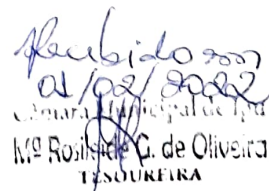 Recebido em
01/02/2022
Câmara Municipal de Ipu
Mª Rosileide G. de Oliveira
TESOUREIRA